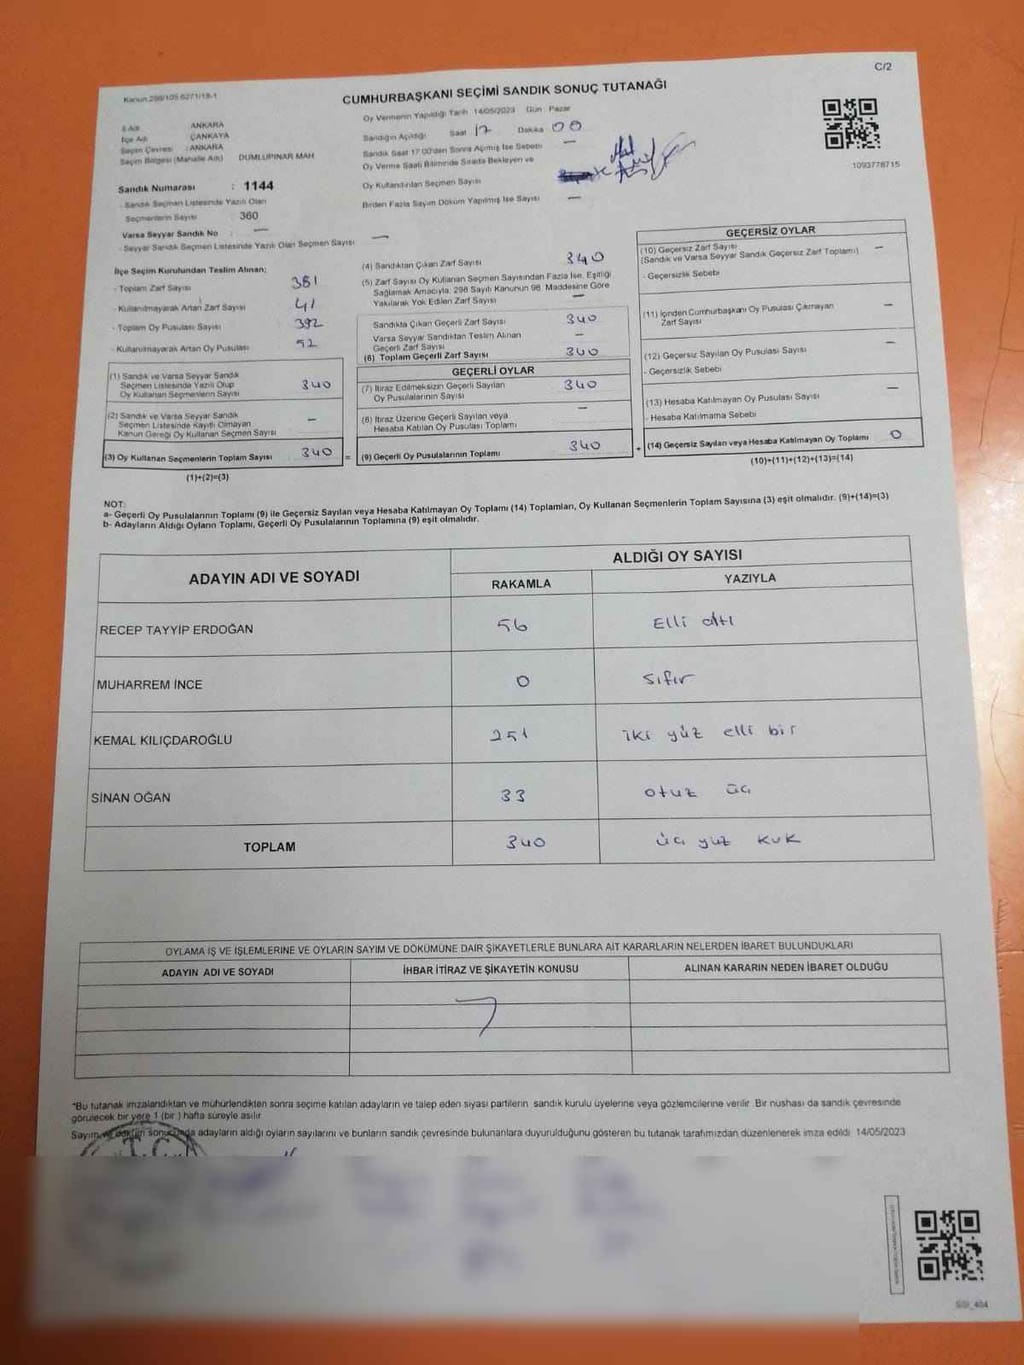 C/2
Kanun.298/105.6271/19-1
CUMHURBAŞKANI SEÇİMİ SANDIK SONUÇ TUTANAĞI
İl Adı ANKARA
İlçe Adı ÇANKAYA
Seçim Çevresi : ANKARA
Seçim Bölgesi (Mahalle Adı) DUMLUPINAR MAH
Sandık Numarası : 1144
- Sandık Seçmen Listesinde Yazılı Olan
Seçmenlerin Sayısı 360
Varsa Seyyar Sandık No : —
- Seyyar Sandık Seçmen Listesinde Yazılı Olan Seçmen Sayısı —
Oy Vermenin Yapıldığı Tarih 14/05/2023 Gün : Pazar
Sandığın Açıldığı Saat 17 Dakika 00
Sandık Saat 17:00'den Sonra Açılmış İse Sebebi —
Oy Verme Saati Bitiminde Sırada Bekleyen ve
Oy Kullandırılan Seçmen Sayısı
Birden Fazla Sayım Döküm Yapılmış İse Sayısı —
1093778715
İlçe Seçim Kurulundan Teslim Alınan;
- Toplam Zarf Sayısı 381
- Kullanılmayarak Artan Zarf Sayısı 41
- Toplam Oy Pusulası Sayısı 392
- Kullanılmayarak Artan Oy Pusulası 52
(1) Sandık ve Varsa Seyyar Sandık
Seçmen Listesinde Yazılı Olup
Oy Kullanan Seçmenlerin Sayısı 340
(2) Sandık ve Varsa Seyyar Sandık
Seçmen Listesinde Kayıtlı Olmayan
Kanun Gereği Oy Kullanan Seçmen Sayısı —
(3) Oy Kullanan Seçmenlerin Toplam Sayısı 340 =
(1)+(2)=(3)
(4) Sandıktan Çıkan Zarf Sayısı 340
(5) Zarf Sayısı Oy Kullanan Seçmen Sayısından Fazla İse, Eşitliği
Sağlamak Amacıyla, 298 Sayılı Kanunun 98. Maddesine Göre
Yakılarak Yok Edilen Zarf Sayısı —
Sandıkta Çıkan Geçerli Zarf Sayısı 340
Varsa Seyyar Sandıktan Teslim Alınan
Geçerli Zarf Sayısı —
(6) Toplam Geçerli Zarf Sayısı 340
GEÇERLİ OYLAR
(7) İtiraz Edilmeksizin Geçerli Sayılan
Oy Pusulalarının Sayısı 340
(8) İtiraz Üzerine Geçerli Sayılan veya
Hesaba Katılan Oy Pusulaları Toplamı —
(9) Geçerli Oy Pusulalarının Toplamı 340 +
GEÇERSİZ OYLAR
(10) Geçersiz Zarf Sayısı —
(Sandık ve Varsa Seyyar Sandık Geçersiz Zarf Toplamı)
- Geçersizlik Sebebi
(11) İçinden Cumhurbaşkanı Oy Pusulası Çıkmayan —
Zarf Sayısı
(12) Geçersiz Sayılan Oy Pusulası Sayısı —
- Geçersizlik Sebebi
(13) Hesaba Katılmayan Oy Pusulası Sayısı —
- Hesaba Katılmama Sebebi
(14) Geçersiz Sayılan veya Hesaba Katılmayan Oy Toplamı 0
(10)+(11)+(12)+(13)=(14)
NOT:
a- Geçerli Oy Pusulalarının Toplamı (9) ile Geçersiz Sayılan veya Hesaba Katılmayan Oy Toplamı (14) Toplamları, Oy Kullanan Seçmenlerin Toplam Sayısına (3) eşit olmalıdır. (9)+(14)=(3)
b- Adayların Aldığı Oyların Toplamı, Geçerli Oy Pusulalarının Toplamına (9) eşit olmalıdır.
ADAYIN ADI VE SOYADI
ALDIĞI OY SAYISI
RAKAMLA YAZIYLA
RECEP TAYYİP ERDOĞAN 56 Elli altı
MUHARREM İNCE 0 sıfır
KEMAL KILIÇDAROĞLU 251 iki yüz elli bir
SİNAN OĞAN 33 otuz üç
TOPLAM 340 üç yüz kırk
OYLAMA İŞ VE İŞLEMLERİNE VE OYLARIN SAYIM VE DÖKÜMÜNE DAİR ŞİKAYETLERLE BUNLARA AİT KARARLARIN NELERDEN İBARET BULUNDUKLARI
ADAYIN ADI VE SOYADI İHBAR İTİRAZ VE ŞİKAYETİN KONUSU ALINAN KARARIN NEDEN İBARET OLDUĞU
*Bu tutanak imzalandıktan ve mühürlendikten sonra seçime katılan adayların ve talep eden siyasi partilerin, sandık kurulu üyelerine veya gözlemcilerine verilir. Bir nüshası da sandık çevresinde
görülecek bir yere 1 (bir ) hafta süreyle asılır.
Sayım ve döküm sonucunda adayların aldığı oyların sayılarını ve bunların sandık çevresinde bulunanlara duyurulduğunu gösteren bu tutanak tarafımızdan düzenlenerek imza edildi. 14/05/2023
T.C.